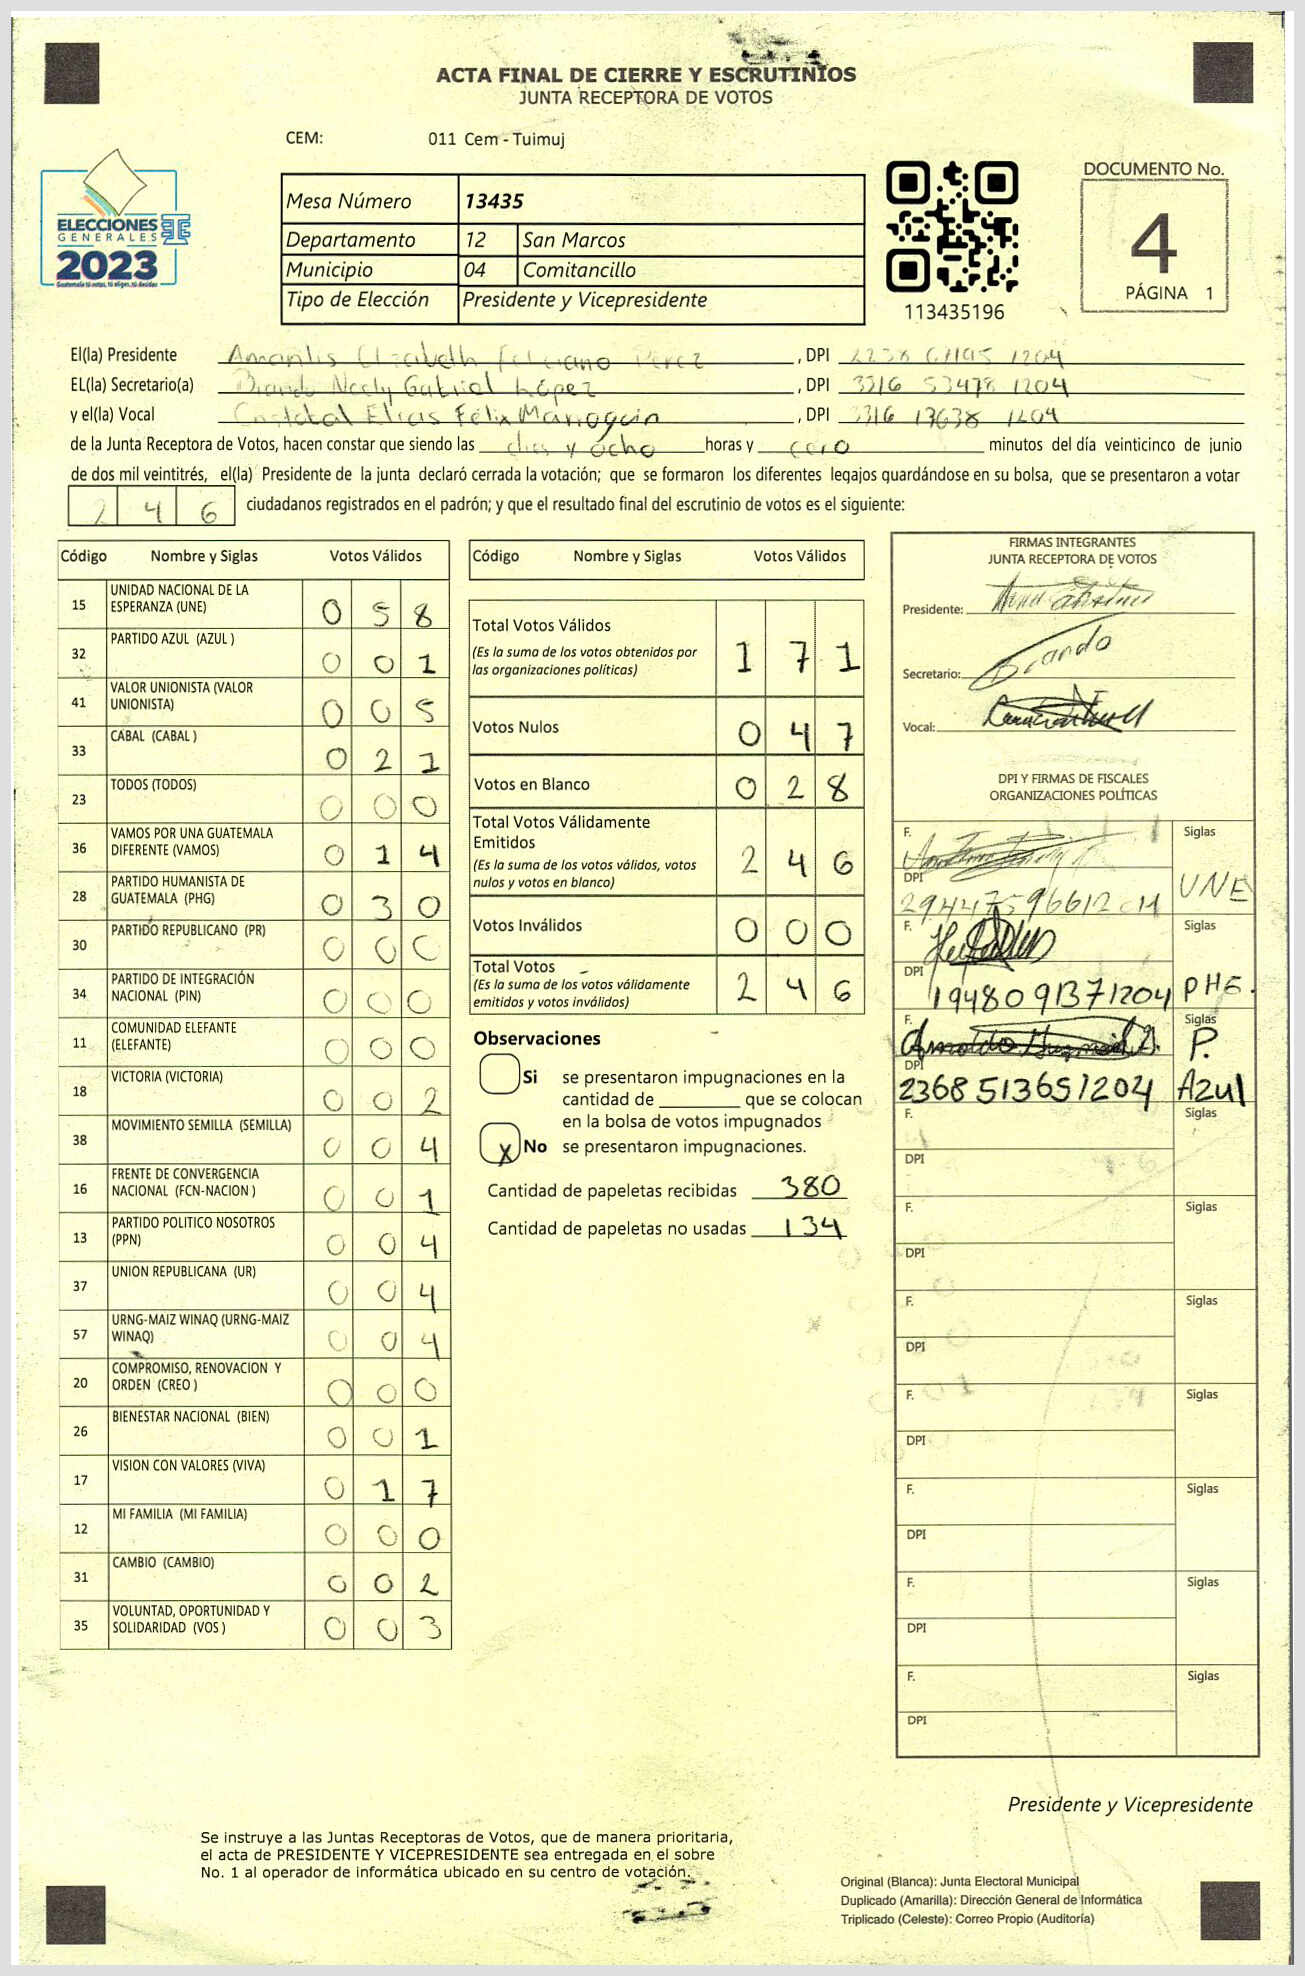 ACTA FINAL DE CIERRE Y ESCRUTINIOS
JUNTA RECEPTORA DE VOTOS
CEM: 011 Cem - Tuimuj
ELECCIONES
GENERALES
2023
Guatemala tú votas, tú eliges, tú decides
Mesa Número 13435
Departamento 12 San Marcos
Municipio 04 Comitancillo
Tipo de Elección Presidente y Vicepresidente
113435196
DOCUMENTO No.
4
PÁGINA 1
El(la) Presidente Elizabeth Feliciano Perez, DPI 1204
EL(la) Secretario(a) Brando Neely Gabriel López, DPI 3316 53478 1204
y el(la) Vocal Cristobal Elias Félix Marroquin, DPI 3316 13638 1204
de la Junta Receptora de Votos, hacen constar que siendo las dies y ocho horas y cero minutos del día veinticinco de junio
de dos mil veintitrés, el(la) Presidente de la junta declaró cerrada la votación; que se formaron los diferentes legajos guardándose en su bolsa, que se presentaron a votar
2 4 6 ciudadanos registrados en el padrón; y que el resultado final del escrutinio de votos es el siguiente:
Código Nombre y Siglas Votos Válidos
15 UNIDAD NACIONAL DE LA
ESPERANZA (UNE) 0 5 8
32 PARTIDO AZUL (AZUL ) 0 0 1
41 VALOR UNIONISTA (VALOR
UNIONISTA) 0 0 5
33 CABAL (CABAL ) 0 2 1
23 TODOS (TODOS) 0 0 0
36 VAMOS POR UNA GUATEMALA
DIFERENTE (VAMOS) 0 1 4
28 PARTIDO HUMANISTA DE
GUATEMALA (PHG) 0 3 0
30 PARTIDO REPUBLICANO (PR) 0 0 0
34 PARTIDO DE INTEGRACIÓN
NACIONAL (PIN) 0 0 0
11 COMUNIDAD ELEFANTE
(ELEFANTE) 0 0 0
18 VICTORIA (VICTORIA) 0 0 2
38 MOVIMIENTO SEMILLA (SEMILLA) 0 0 4
16 FRENTE DE CONVERGENCIA
NACIONAL (FCN-NACION ) 0 0 1
13 PARTIDO POLITICO NOSOTROS
(PPN) 0 0 4
37 UNION REPUBLICANA (UR) 0 0 4
57 URNG-MAIZ WINAQ (URNG-MAIZ
WINAQ) 0 0 4
20 COMPROMISO, RENOVACION Y
ORDEN (CREO ) 0 0 0
26 BIENESTAR NACIONAL (BIEN) 0 0 1
17 VISION CON VALORES (VIVA) 0 1 7
12 MI FAMILIA (MI FAMILIA) 0 0 0
31 CAMBIO (CAMBIO) 0 0 2
35 VOLUNTAD, OPORTUNIDAD Y
SOLIDARIDAD (VOS ) 0 0 3
Código Nombre y Siglas Votos Válidos
Total Votos Válidos
(Es la suma de los votos obtenidos por
las organizaciones políticas) 1 7 1
Votos Nulos 0 4 7
Votos en Blanco 0 2 8
Total Votos Válidamente
Emitidos
(Es la suma de los votos válidos, votos
nulos y votos en blanco) 2 4 6
Votos Inválidos 0 0 0
Total Votos
(Es la suma de los votos válidamente
emitidos y votos inválidos) 2 4 6
Observaciones
Si se presentaron impugnaciones en la
cantidad de ________ que se colocan
en la bolsa de votos impugnados
x No se presentaron impugnaciones.
Cantidad de papeletas recibidas 380
Cantidad de papeletas no usadas 134
FIRMAS INTEGRANTES
JUNTA RECEPTORA DE VOTOS
Presidente:
Secretario: Brando
Vocal:
DPI Y FIRMAS DE FISCALES
ORGANIZACIONES POLÍTICAS
F. Siglas
DPI UNE
F. Siglas
DPI 1948091371204 PHG.
F. Siglas
DPI 2368513651204 P. Azul
F. Siglas
DPI
F. Siglas
DPI
F. Siglas
DPI
F. Siglas
DPI
F. Siglas
DPI
F. Siglas
DPI
F. Siglas
DPI
Presidente y Vicepresidente
Se instruye a las Juntas Receptoras de Votos, que de manera prioritaria,
el acta de PRESIDENTE Y VICEPRESIDENTE sea entregada en el sobre
No. 1 al operador de informática ubicado en su centro de votación.
Original (Blanca): Junta Electoral Municipal
Duplicado (Amarilla): Dirección General de Informática
Triplicado (Celeste): Correo Propio (Auditoría)